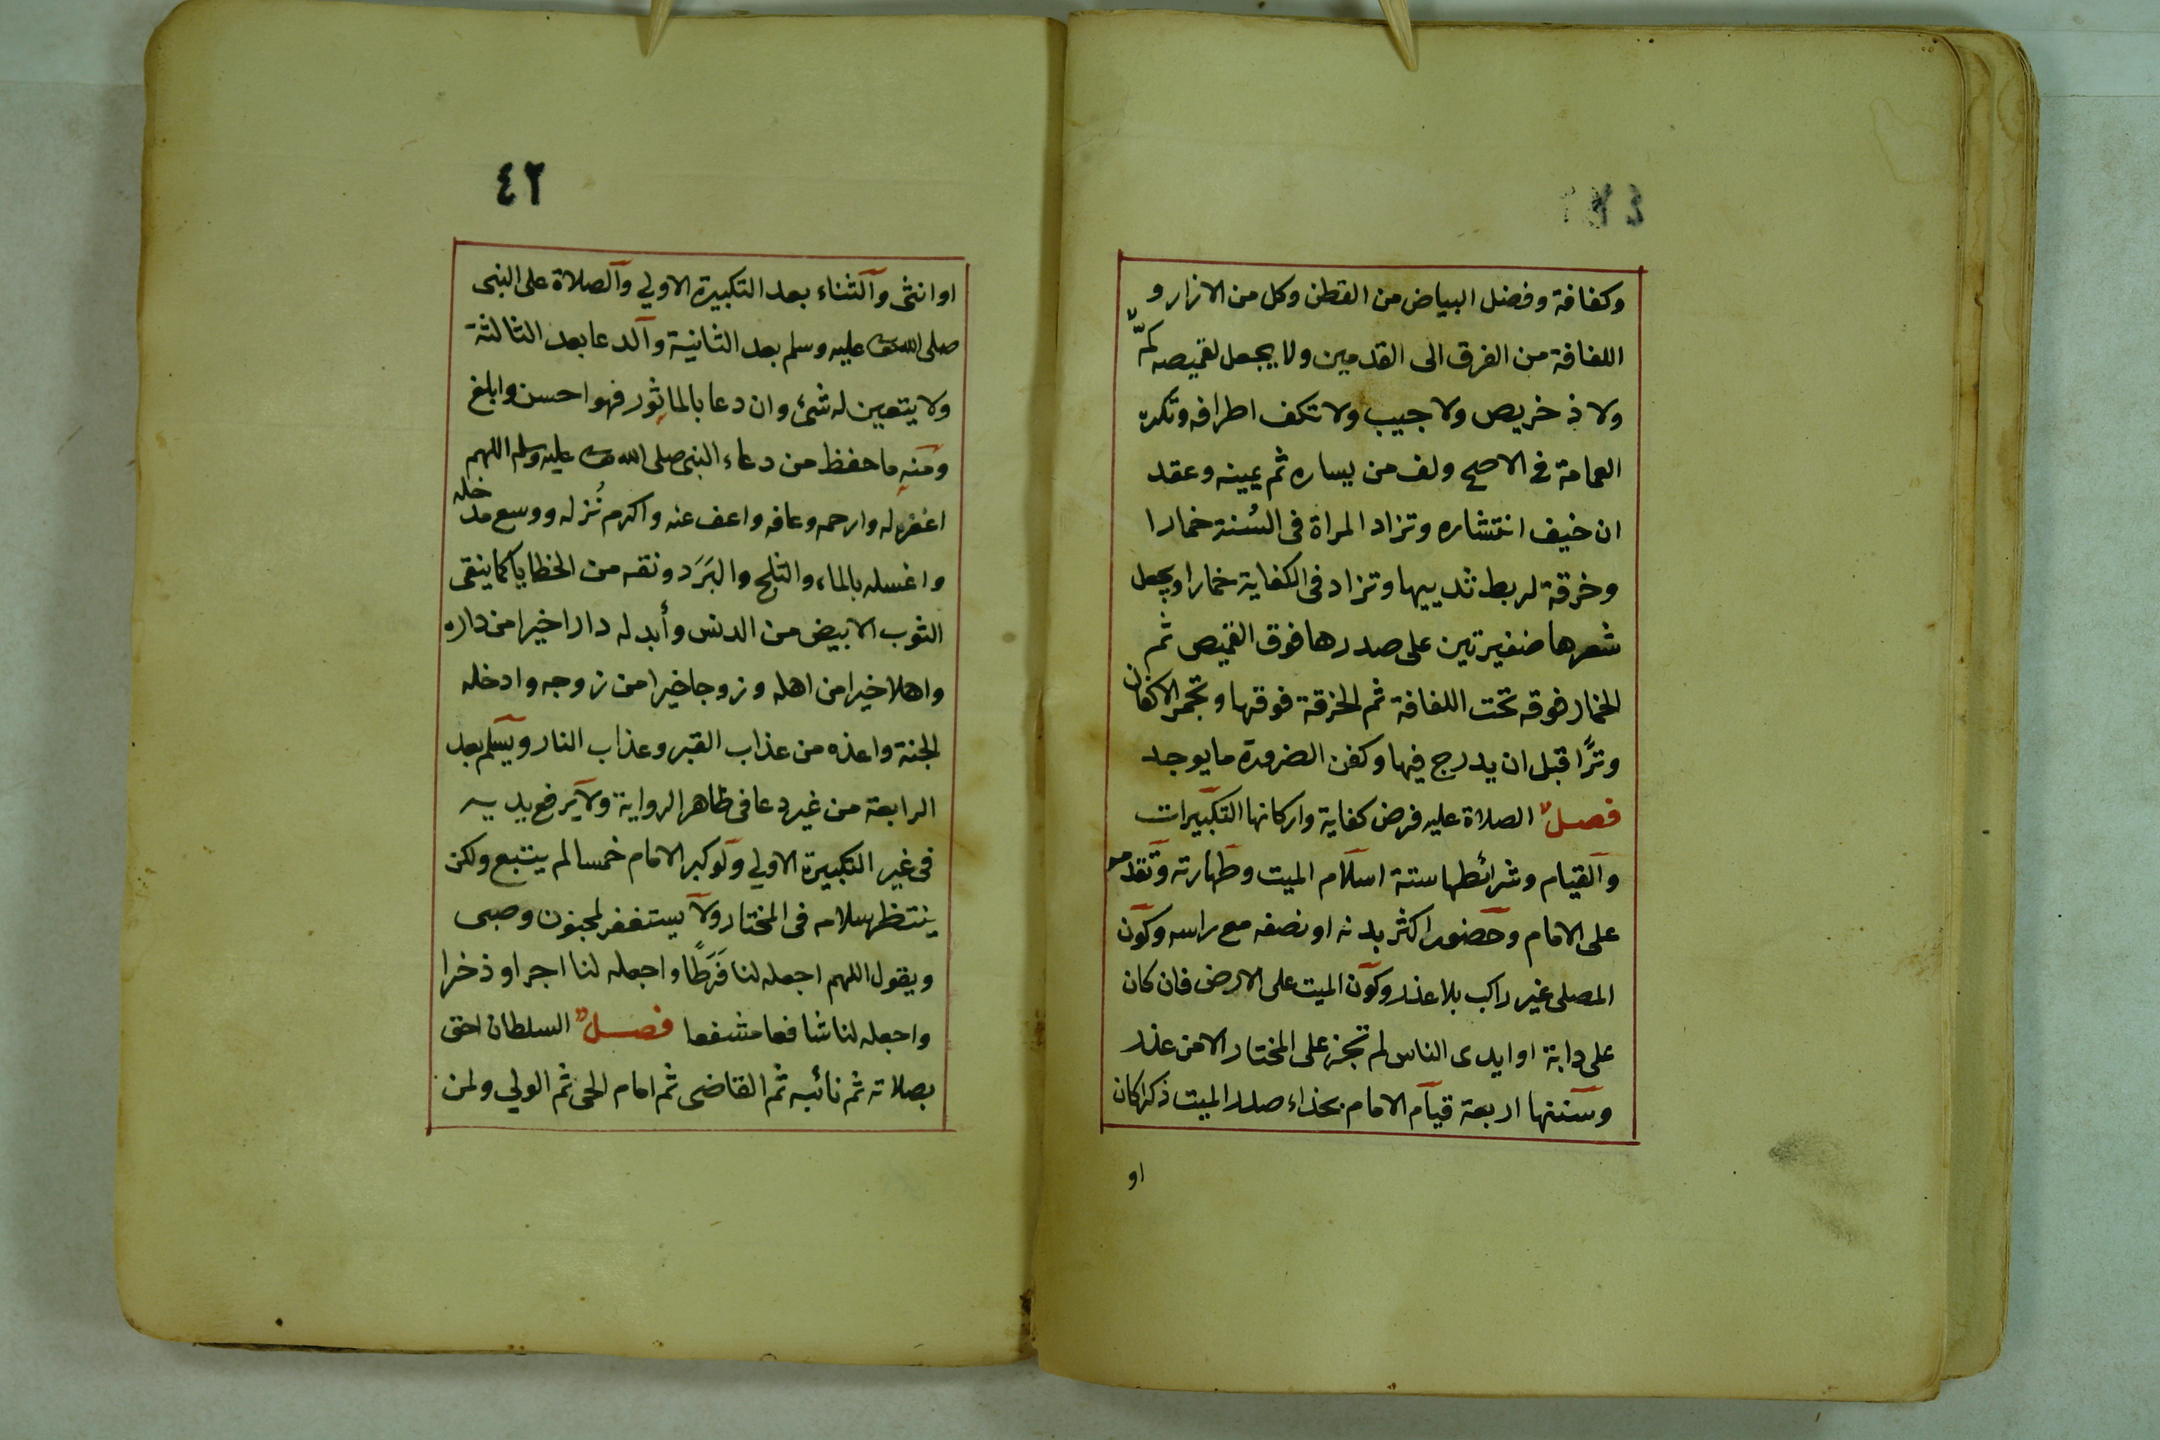 وكفافة وفضل البياض من القطن وكل من الازار و
اللفافة من الفرق الى القدمين ولا يجعل لقميصه كمّ
ولا ذخريص ولا جيب ولا تكف اطرافه وتكره
العمامة فى الاصح ولف من يساره ثم يمينه وعقد
ان خيف انتشاره وتزاد المراة فى السُنة خمارا
وخرقة لربط ثدييها وتزاد فى الكفاية خمارا ويجعل
شعرها ضفيرتين على صدرها فوق القميص ثم
الخمار فوقه تحت اللفافة ثم الخرقة فوقها وتجمر الاكفان
وترًا قبل ان يدرج فيها وكفن الضرورة ما يوجد
فصل الصلاة عليه فرض كفاية واركانها التكبيرات
والقيام وشرائطها ستة اسلام الميت وطهارته وتقدمه
على الامام وحضور اكثر بدنه او نصفه مع راسه وكون
المصلى غير راكب بلا عذر وكون الميت على الارض فان كان
على دابة او ايدى الناس لم تجز على المختار الا من عذر
وسننها اربعة قيام الامام بحذاء صدر الميت ذكرا كان
او
٤٢
او انثى والثناء بعد التكبيرة الاولي والصلاة على النبى
صلى الله عليه وسلم بعد الثانية والدعا بعد الثالثة
ولا يتعين له شئ وان دعا بالماثور فهو احسن وابلغ
ومنه ما حفظ من دعاء النبى صلى الله عليه وسلم اللهم
اغفر له وارحمه وعافه واعف عنه واكرم نُزله ووسع مدخله
واغسله بالماء والثلج والبَرَد ونقه من الخطايا كما ينقى
الثوب الابيض من الدنس وأبدله دارا خيرا من داره
واهلا خيرا من اهله وزوجا خيرا من زوجه وادخله
الجنة واعذه من عذاب القبر وعذاب النار ويسلم بعد
الرابعة من غير دعا فى ظاهر الرواية ولا يرفع يديه
فى غير التكبيرة الاولي ولو كبر الامام خمسا لم يتبع ولكن
ينتظر سلامه فى المختار ولا يستغفر لمجنون وصبى
ويقول اللهم اجعله لنا فَرَطًا واجعله لنا اجرا وذخرا
واجعله لنا شافعا مشفعا فصل السلطان احق
بصلاته ثم نائبه ثم القاضى ثم امام الحى ثم الولي ولمن